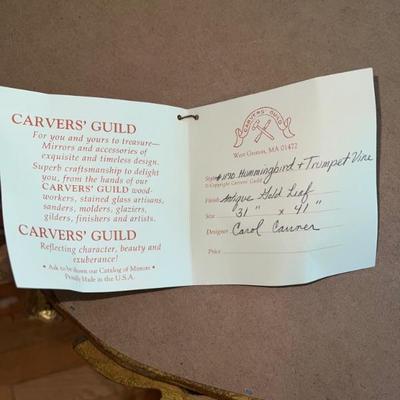 CARVERS' GUILD
For you and yours to treasure—
Mirrors and accessories of
exquisite and timeless design.
Superb craftsmanship to delight
you, from the hands of our
CARVERS' GUILD wood-
workers, stained glass artisans,
sanders, molders, glaziers,
gilders, finishers and artists.
CARVERS' GUILD
Reflecting character, beauty and
exuberance!
• Ask to be shown our Catalog of Mirrors •
Proudly Made in the U.S.A.
CARVERS' GUILD
West Groton, MA 01472
Style #1190 Hummingbird + Trumpet Vine
© Copyright Carvers' Guild
Finish Antique Gold Leaf
Size 31" x 41"
Designer Carol Canner
Price